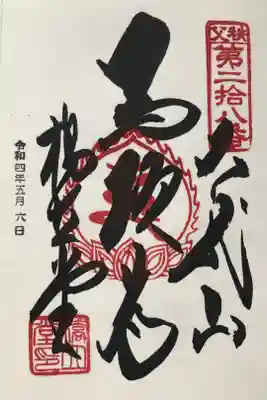 秩父
第二拾八番
石龍山
馬頭尊
橋立堂
令和四年五月六日